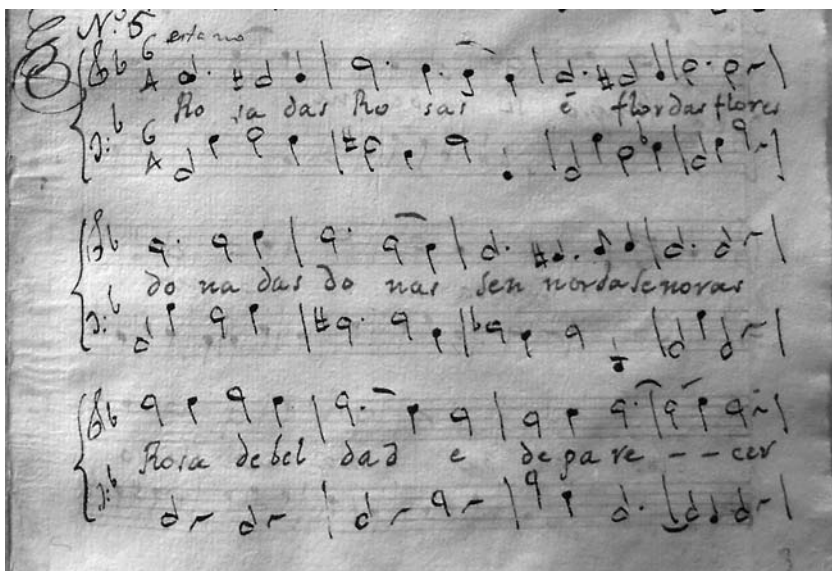 Nº 5
6 4
Ro sa das Ro sas é flor das flores
6 4
do na das do nas Sen nor da senoras
Rosa de bel dad e de pa re - - cer
3